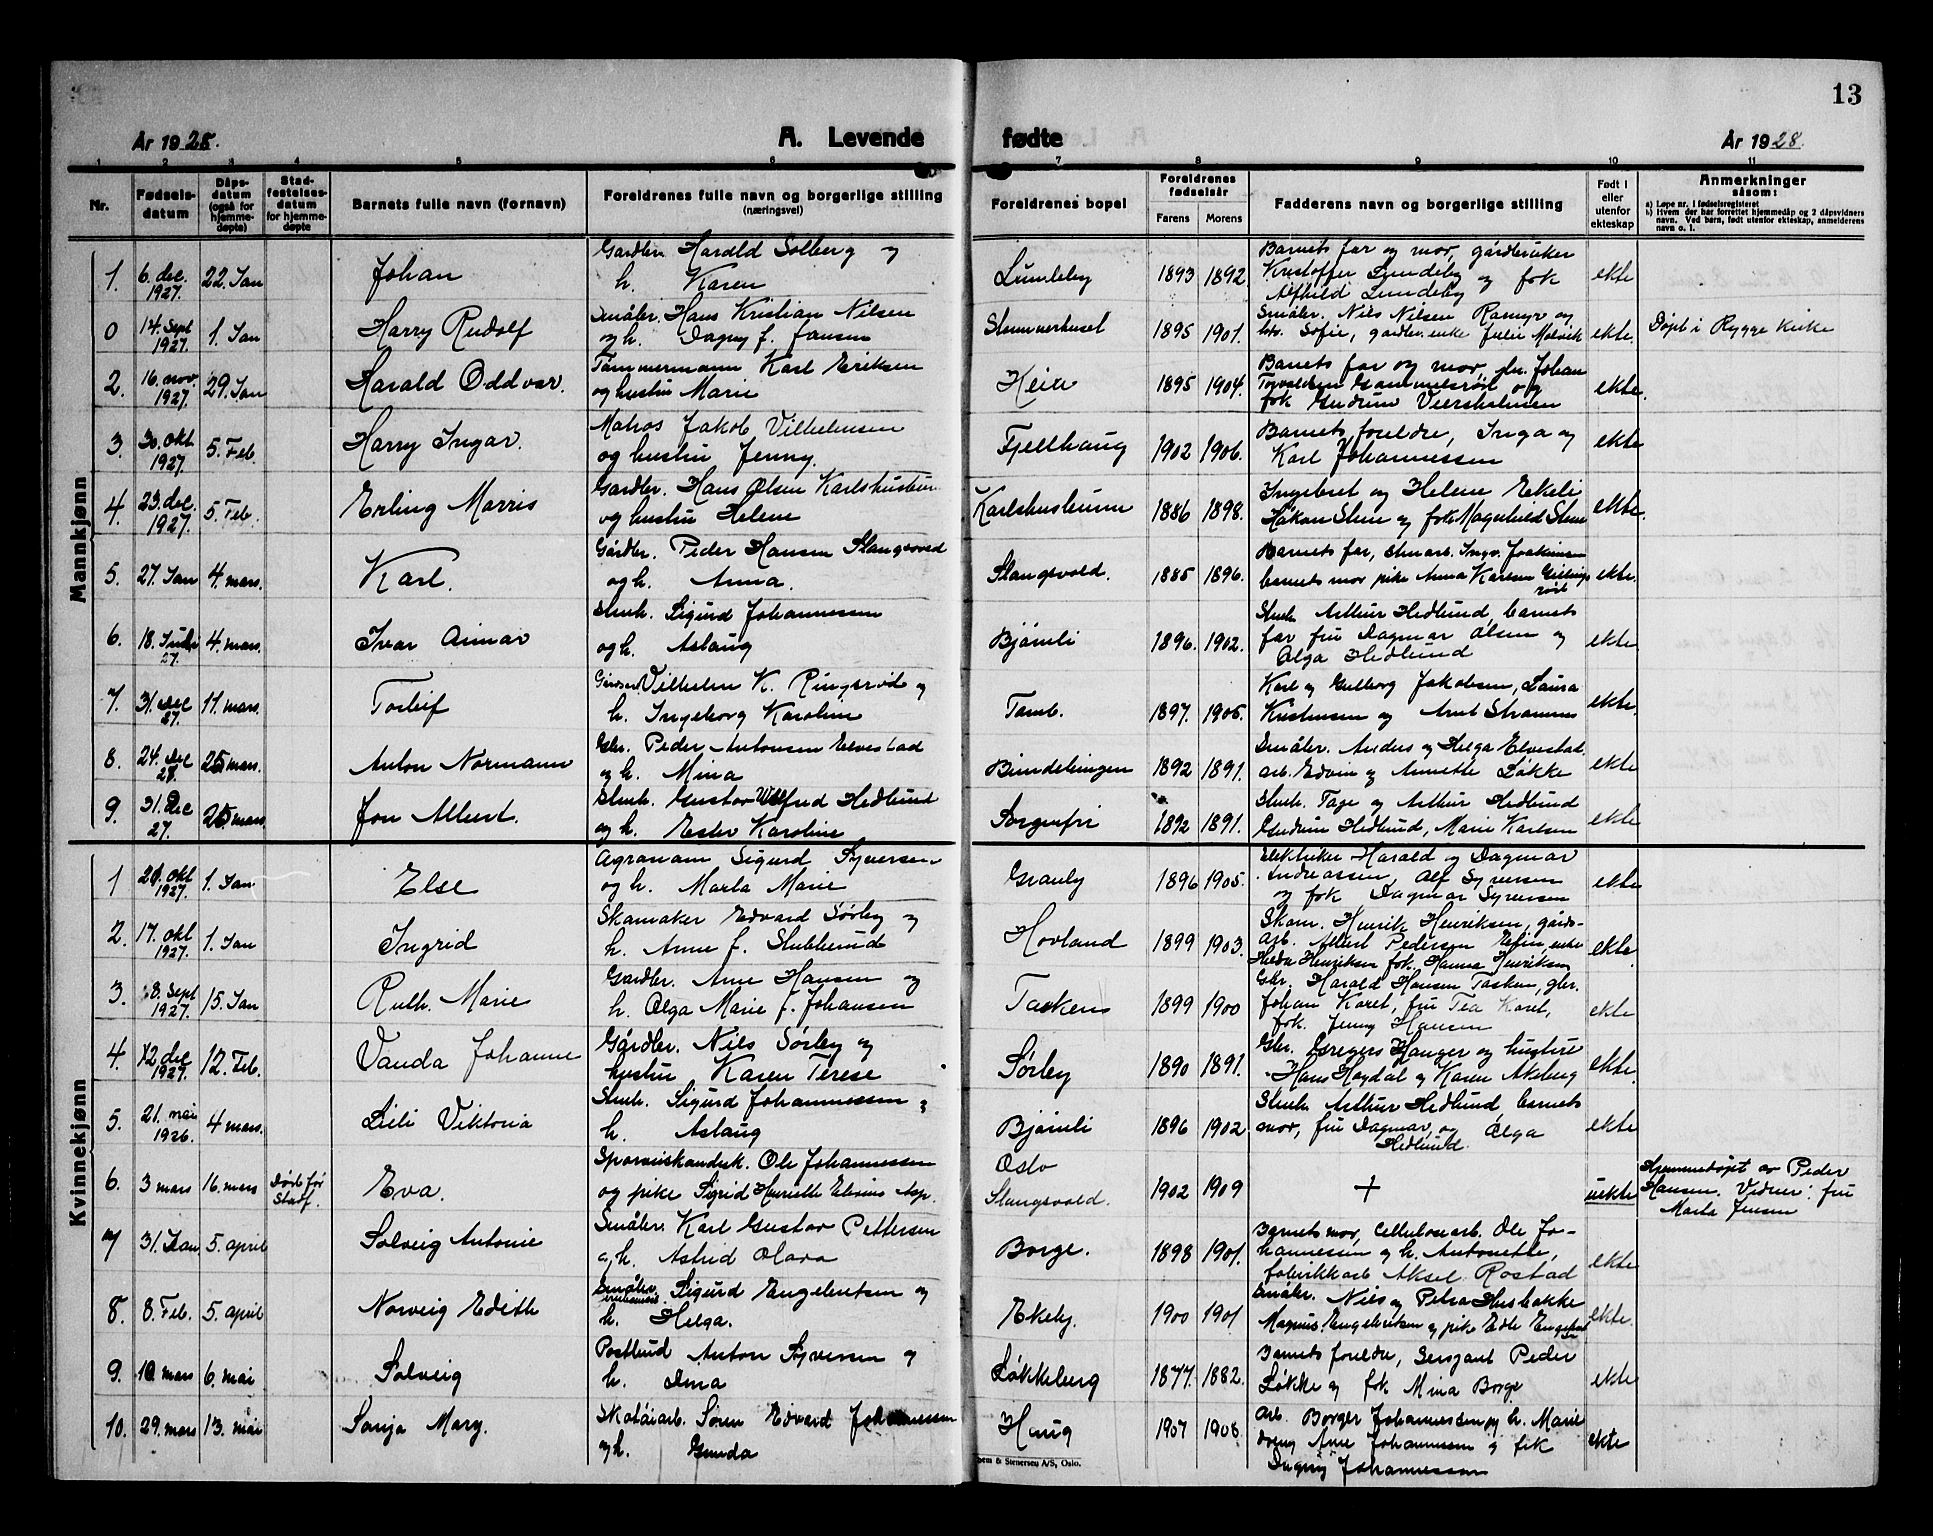 13
År 1928. A. Levende fødte År 1928.
1 2 3 4 5 6 7 8 9 10 11
Nr. Fødselsdatum Dåpsdatum (også for hjemmedøpte) Stadfestelsesdatum for hjemmedøpte Barnets fulle navn (fornavn) Foreldrenes fulle navn og borgerlige stilling (næringsvei) Foreldrenes bopel Foreldrenes fødselsår Farens Morens Fadderens navn og borgerlige stilling Født i eller utenfor ekteskap Anmerkninger såsom:
a) Løpe nr. i fødselsregisteret
b) Hvem der har forrettet hjemmedåp og 2 dåpsvidners navn. Ved barn, født utenfor ekteskap, anmelderens navn o. l.
Mannkjønn
1. 6. dec. 1927. 22. Jan Johan Gardbr. Harald Solberg og h. Karen Lundeby 1893 1892. Barnets far og mor, gårdbruker Kristoffer Lundeby og frk Alfhild Lundeby ekte
0 14. Sept 1927. 1. Jan Harry Rudolf Småbr. Hans Kristian Nilsen og h. Dagny f. Jansen 1895 1901. Småbr. Nils Nilsen Ramyr og hu. Sofie, gardbr. enke Julie Molvik ekte. Døpt i Rygge kirke
2. 16. nov. 1927. 29. Jan Harald Oddvar. Tømmermann Karl Eriksen og hustru Marie Heia 1895 1904. Barnets far og mor, Johan Torvaldsen Gammelsrød og frk Gudrun ekte.
3. 30. okt 1927. 5. Feb. Harry Ingar. Matros Jakob Vilhelmsen og hustru Jenny. Fjellhaug 1902 1906. Barnets foreldre, Inga og Karl Johannessen ekte
4. 23. dec. 1927. 5. Feb. Erling Morris Gardbr. Hans Olsen Karlshusbunn og hustru Helene Karlshusbunn 1886 1898. Ingebret og Helene Ekeli Håkon Stene og frk Magnhild Stene ekte.
5. 27. Jan 4. mars. Karl. Gårdbr. Peder Hansen Slangsvold og h. Anna. Slangsvold. 1885 1896. Barnets far, stenarb. Ingv. Joakimsen barnets mor pike Anna Karlsen ekte.
6. 18. 27. 4. mars. Ivar Aimar Stenh. Sigurd Johannessen og h. Aslaug Bjørnli 1896. 1902. Stenh. Arthur Hedlund, barnets far fru Dagmar Olsen og Olga Hedlund ekte.
7. 31. Dec 27. 11. mars. Torleif Vilhelm K. Ringsrød og h. Ingeborg Karoline Tomb. 1897. 1906. Karl og Gulborg Jakobsen, Laura Kristensen og Arnt ekte.
8. 24. Dec 28. 25 mars. Anton Normann Gbr. Peder Antonsen Elvestad og h. Mina 1892 1891. Småbr. Anders og Helga Elvestad. arb. Edvin og Annette Løkke ekte
9. 31. Dec 27. 25 mars. Jon Albert. Stenh. Gustav Wilfred Hedlund og h. Ester Karoline Sorgenfri 1892 1891. Stenh. Tage og Arthur Hedlund Gudrun Hedlund, Marie Karlsen ekte
Kvinnekjønn
1 21. okt 1927. 1. Jan Else Agronom Sigurd Syversen og h. Marta Marie Granly 1896 1905. Elektriker Harald og Dagmar Andreassen, Alf Syversen og frk Dagmar Syversen ekte
2. 17. okt 1927. 1. Jan Ingrid Skomaker Edvard Sørby og h. Anne f. Stubberud Hovland 1899 1903. Skom. Henrik Henriksen, gårds-arb. Albert Pedersen enke Hilda Henriksen frk. Hanna Henriksen ekte.
3. 8. Sept 1927. 15. Jan Ruth Marie Gardbr. Arne Hansen og h. Olga Marie f. Johansen Tasken 1899 1900 Gbr. Harald Hansen Tasken, gbr. Johan Karet, fru Tea Karet, frk. Jenny Hansen ekte
4. 12 dec 1927. 12. Feb. Vanda Johanne Gårdbr. Nils Sørby og hustru Karen Terese Sørby 1890 1891. Gbr. Gregers Hauger og hustru Hans Høydal og Karen Akeberg ekte.
5. 21. mai 1926. 4 mars. Lilli Viktoria Stenh. Sigurd Johannessen og h. Aslaug Bjørnli 1896 1902 Stenh. Arthur Hedlund, barnets mor, fru Dagmar, og Olga Hedlund. ekte
6. 3 mars 16. mars Død før Stadf. Eva. Ole Johannessen og pike Sigrid Henriette Oslo Slangsvold. 1902 1909 + uekte Hjemmedøpt av Peder Hansen. Vidner: fru Marta Jensen
7 31. Jan 5. april Solveig Antonie Småbr. Karl Gustav Pettersen og h. Astrid Olava Borge. 1898 1901. Barnets mor, Cellulosearb. Ole Johannessen og h. Antonette, fabrikkarb Aksel Rostad ekte
8. 8. Feb. 5. april Norveig Edith Småbr. Sigurd Engebretsen og h. Helga. Ekeby. 1900 1901 Småbr. Nils og Petra Husebakke Magnus Engebretsen og pike Edle ekte.
9. 10 mars 6. mai Solveig Postbud Anton Syversen og h. Løkkeberg 1877. 1882. Barnets foreldre, Sersjant Peder Løkke og frk Mina Borge ekte
10. 29. mars 13. mai Sonja Mary. Søren Edvard Johannessen og h. Gunda Haug 1907 1908. Arb. Borger Johannessen og h. Marie dreng Arne Johannessen og frk Dagny Johannessen ekte